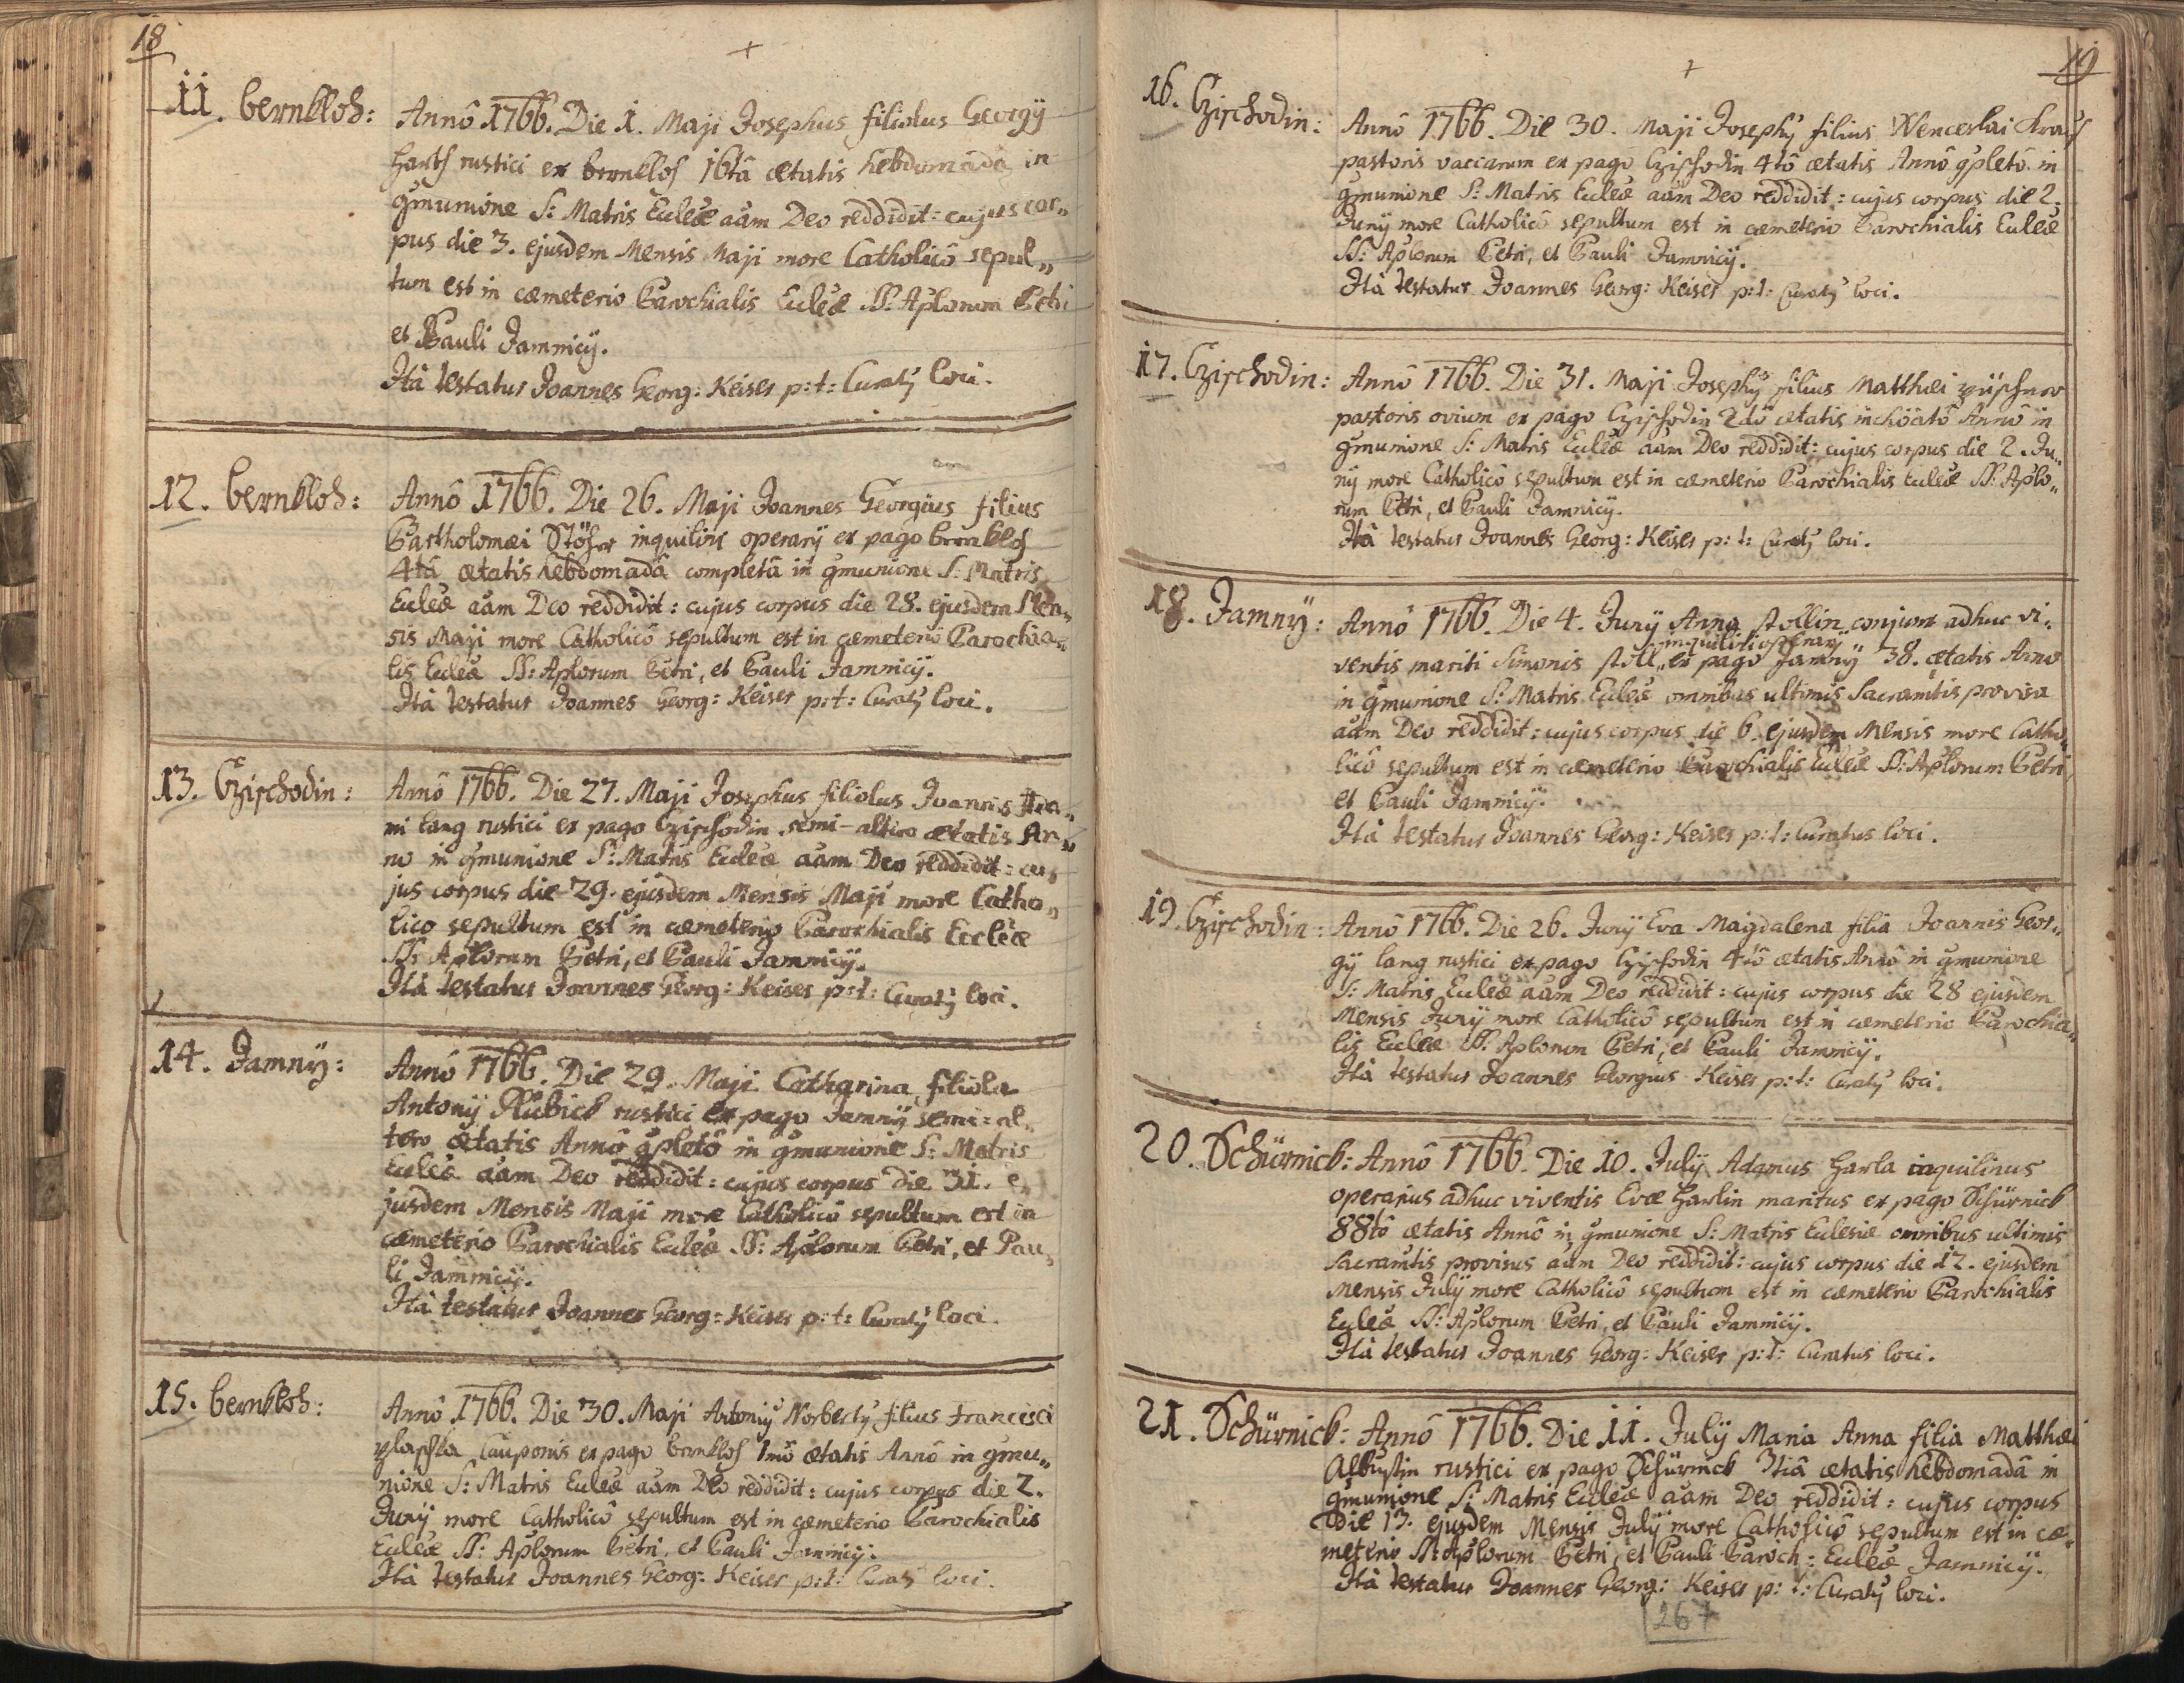 18
11. bernkloh:
Annô 1766. Die 1. Maji Josephus filiolus Georgÿ
rustici ex bernkloh 16tâ ætatis hebdomadâ in
gmunione S: Matris Eccleæ aãm Deo reddidit: cujus cor„
pus die 3. ejusdem Mensis Maji more Catholicô sepul„
tum est in cæmeterio Parochialis Eccleæ SS: Aplorum Petri
et Pauli Jamnicÿ.
Ità testatur Joannes Georg: Keiser p: t: Curatÿ loci.
12. bernkloh:
Annô 1766. Die 26. Maji Joannes Georgius filius
Bartholomæi inquilini operarÿ ex pago bernkloh
4tâ ætatis hebdomadâ completâ in gmunione S: Matris
Eccleæ aãm Deo reddidit: cujus corpus die 28. ejusdem Men„
sis Maji more Catholicô sepultum est in cæmeterio Parochia„
lis Eccleæ SS: Aplorum Petri, et Pauli Jamnicÿ.
Ità testatur Joannes Georg: Keiser p: t: Curatÿ loci.
13. Czischodin:
Annô 1766. Die 27. Maji Josephus filiolus Joannis Ada„
mi lang rustici ex pago Czischodin semi-altero ætatis An„
no in gmunione S: Matris Eccleæ aãm Deo reddidit: cu„
jus corpus die 29. ejusdem Mensis Maji more Catho„
lico sepultum est in cæmeterio Parochialis Eccleæ
SS: Aplorum Petri, et Pauli Jamnicÿ.
Ità testatur Joannes Georg: Keiser p: t: Curatÿ loci.
14. Jamnÿ:
Annô 1766. Die 29. Maji Catharina filiola
Antonÿ Kubick rustici ex pago Jamnÿ semi=al„
tero ætatis Annô gpletô in gmunione S: Matris
Eccleæ aãm Deo reddidit: cujus corpus die 31. e„
jusdem Mensis Maji more Catholicô sepultum est in
cæmeterio Parochialis Eccleæ SS: Aplorum Petri, et Pau„
li Jamnicÿ.
Ità testatur Joannes Georg: Keiser p: t: Curatÿ loci.
15. bernkloh:
Annô 1766. Die 30. Maji Antoniÿ Norbertÿ filius Francisci
Cauponis ex pago bernkloh 1mô ætatis Annô in gmu„
nione S: Matris Eccleæ aãm Deo reddidit: cujus corpus die 2.
Junÿ more Catholicô sepultum est in cæmeterio Parochialis
Eccleæ SS: Aplorum Petri, et Pauli Jamnicÿ.
Ità testatur Joannes Georg: Keiser p: t: Curatÿ loci.
19
16. Czischodin:
Annô 1766. Die 30. Maji Josephÿ filius Wenceslai Kraus
pastoris vaccarum ex pago Czischodin 4tô ætatis Annô gpletô in
gmunione S: Matris Eccleæ aãm Deo reddidit: cujus corpus die 2.
Junÿ more Catholicô sepultum est in cæmeterio Parochialis Eccleæ
SS: Aplorum Petri, et Pauli Jamnicÿ.
Ità testatur Joannes Georg: Keiser p: t: Curatÿ loci.
17. Czischodin:
Annô 1766. Die 31. Maji Josephÿ filius Matthæi
pastoris ovium ex pago Czischodin 2dô ætatis inchöatô Annô in
gmunione S: Matris Eccleæ aãm Deo reddidit: cujus corpus die 2. Ju„
nÿ more Catholicô sepultum est in cæmeterio Parochialis Eccleæ SS: Aplo„
rum Petri, et Pauli Jamnicÿ.
Ità testatur Joannes Georg: Keiser p: t: Curatÿ loci.
18. Jamnÿ:
Annô 1766. Die 4. Junÿ Anna Stollin conjunx adhuc vi„
inquilini operarÿ
ventis mariti Simonis Stoll „ ex pago Jamnÿ 38. ætatis Anno
in gmunione S: Matris Eccleæ omnibus ultimis Sacramtis provisa
aãm Deo reddidit: cujus corpus die 6. ejusdem Mensis more Catho„
licô sepultum est in cæmeterio Parochialis Eccleæ SS: Aplorum Petri,
et Pauli Jamnicÿ.
Ità testatur Joannes Georg: Keiser p: t: Curatus loci.
19. Czischodin:
Annô 1766. Die 26. Junÿ Eva Magdalena filia Joannis Geor„
gÿ lang rustici ex pago Czischodin 4tô ætatis Annô in gmunione
S: Matris Eccleæ aãm Deo reddidit: cujus corpus die 28 ejusdem
Mensis Junÿ more Catholicô sepultum est in cæmeterio Parochia„
lis Eccleæ SS: Aplorum Petri, et Pauli Jamnicÿ.
Ità testatur Joannes Georgius Keiser p: t: Curatÿ loci.
20. Schürnick:
Annô 1766. Die 10. Julÿ Adamus Harla inquilinus
operarius adhuc viventis Evæ Harlin maritus ex pago Schürnick
88tô ætatis Annô in gmunione S: Matris Eclesiæ omnibus ultimis
sacramtis provisus aãm Deo reddidit: cujus corpus die 12. ejusdem
Mensis Julÿ more Catholicô sepultum est in cæmeterio Parochialis
Eccleæ SS: Aplorum Petri, et Pauli Jamnicÿ.
Ità testatur Joannes Georg: Keiser p: t: Curatus loci.
21. Schürnick:
Annô 1766. Die 11. Julÿ Maria Anna filia Matthæi
Albustin rustici ex pago Schürnick 3tiâ ætatis hebdomadâ in
gmunione S: Matris Eccleæ aãm Deo reddidit: cujus corpus
Die 13. ejusdem Mensis Julÿ more Catholicô sepultum est in cæ„
meterio SS: Aplorum Petri, et Pauli Paroch: Eccleæ Jamnicÿ.
Ità testatur Joannes Georg: Keiser p: t: Curatÿ loci.
267